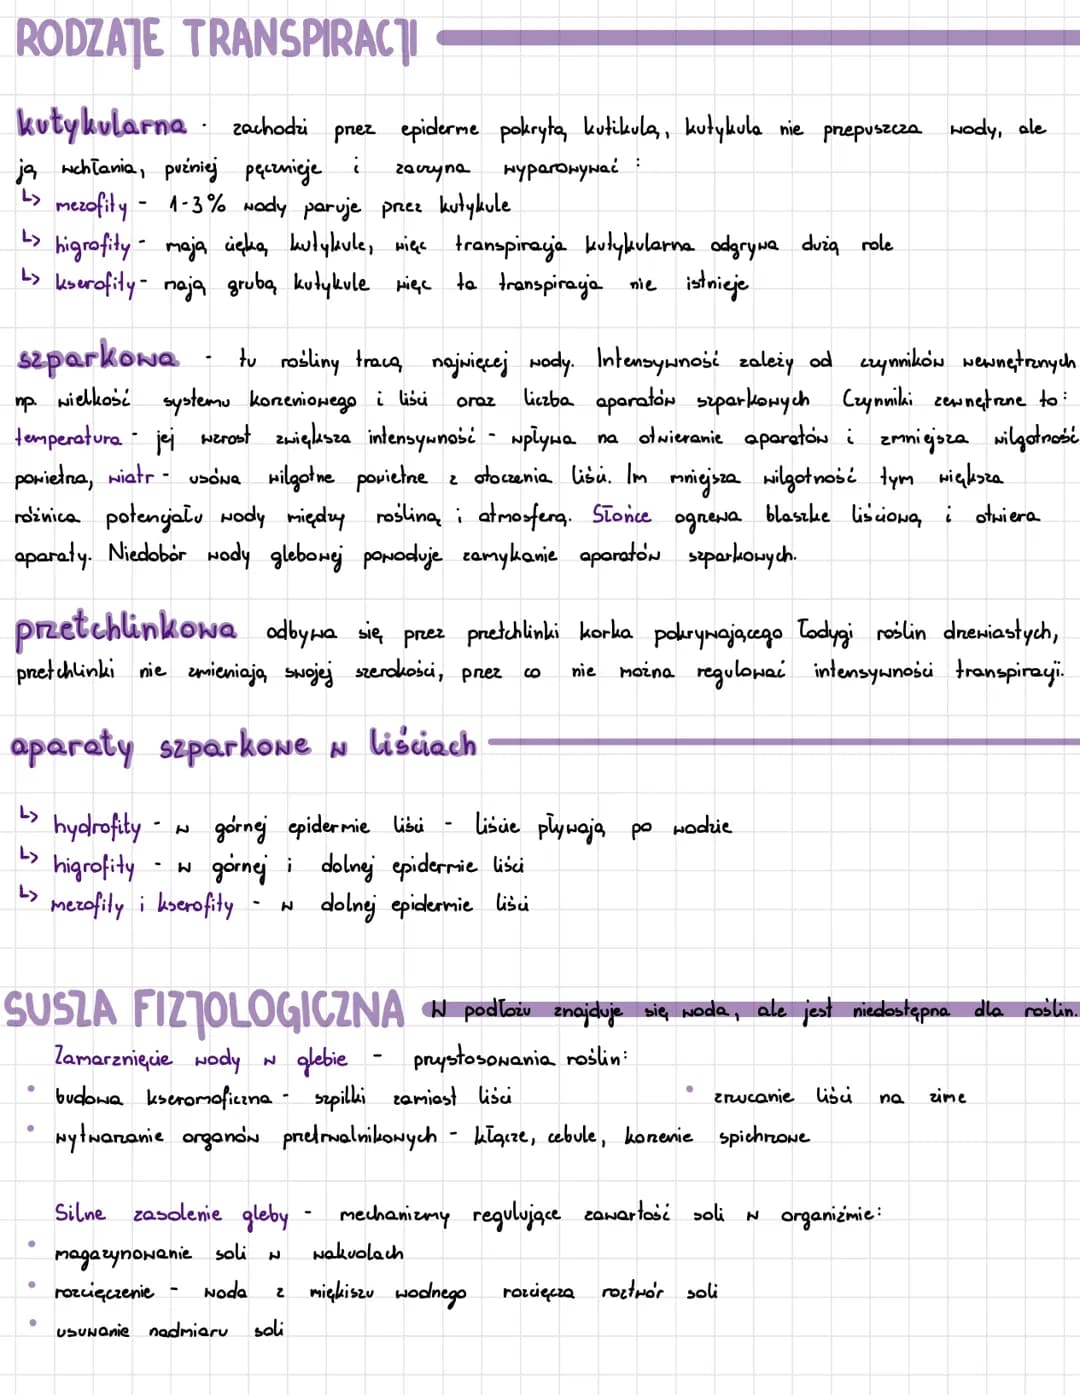 RODZAJE TRANSPIRACJI
kutykularna - zachodzi przez epiderme pokrytą kutikulą, kutykula nie przepuszcza wody, ale
ją wchłania, puźniej pęcznieje i zaczyna wyparowywać :
↳ mezofity - 1-3% wody paruje przez kutykule
↳ higrofity - mają cięką kutykule, więc transpiracja kutykularna odgrywa dużą role
↳ kserofity - mają grubą kutykule więc ta transpiracja nie istnieje
szparkowa - tu rośliny tracą najwięcej wody. Intensywność zależy od czynników wewnętrznych
np. wielkość systemu korzeniowego i liści oraz liczba aparatów szparkowych Czynniki zewnętrzne to:
temperatura - jej wzrost zwiększa intensywność - wpływa na otwieranie aparatów i zmniejsza wilgotność
powietrza, wiatr - usówa wilgotne powietrze z otoczenia liści. Im mniejsza wilgotność tym większa
różnica potencjału wody między rośliną i atmosferą. Słońce ogrzewa blaszke liściową i otwiera
aparaty. Niedobór wody glebowej powoduje zamykanie aparatów szparkowych.
przetchlinkowa odbywa się przez przetchlinki korka pokrywającego łodygi roślin drzewiastych,
przetchlinki nie zmieniają swojej szerokości, przez co nie można regulować intensywności transpiracji.
aparaty szparkowe w liściach
↳ hydrofity - w górnej epidermie liści - liście pływają po wodzie
↳ higrofity - w górnej i dolnej epidermie liści
↳ mezofity i kserofity - w dolnej epidermie liści
SUSZA FIZJOLOGICZNA W podłożu znajduje się woda, ale jest niedostępna dla roślin.
Zamarznięcie wody w glebie - przystosowania roślin:
• budowa kseromoficzna - szpilki zamiast liści • zrzucanie liści na zime
• wytwarzanie organów przetrwalnikowych - kłącze, cebule, korzenie spichrzowe
Silne zasolenie gleby - mechanizmy regulujące zawartość soli w organiźmie:
• magazynowanie soli w wakuolach
• rozcięczenie - woda z miękiszu wodnego rozcięcza roztwór soli
• usuwanie nadmiaru soli